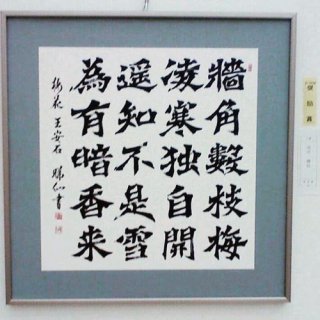 牆角數枝梅
凌寒独自開
遥知不是雪
為有暗香来
梅花 王安石